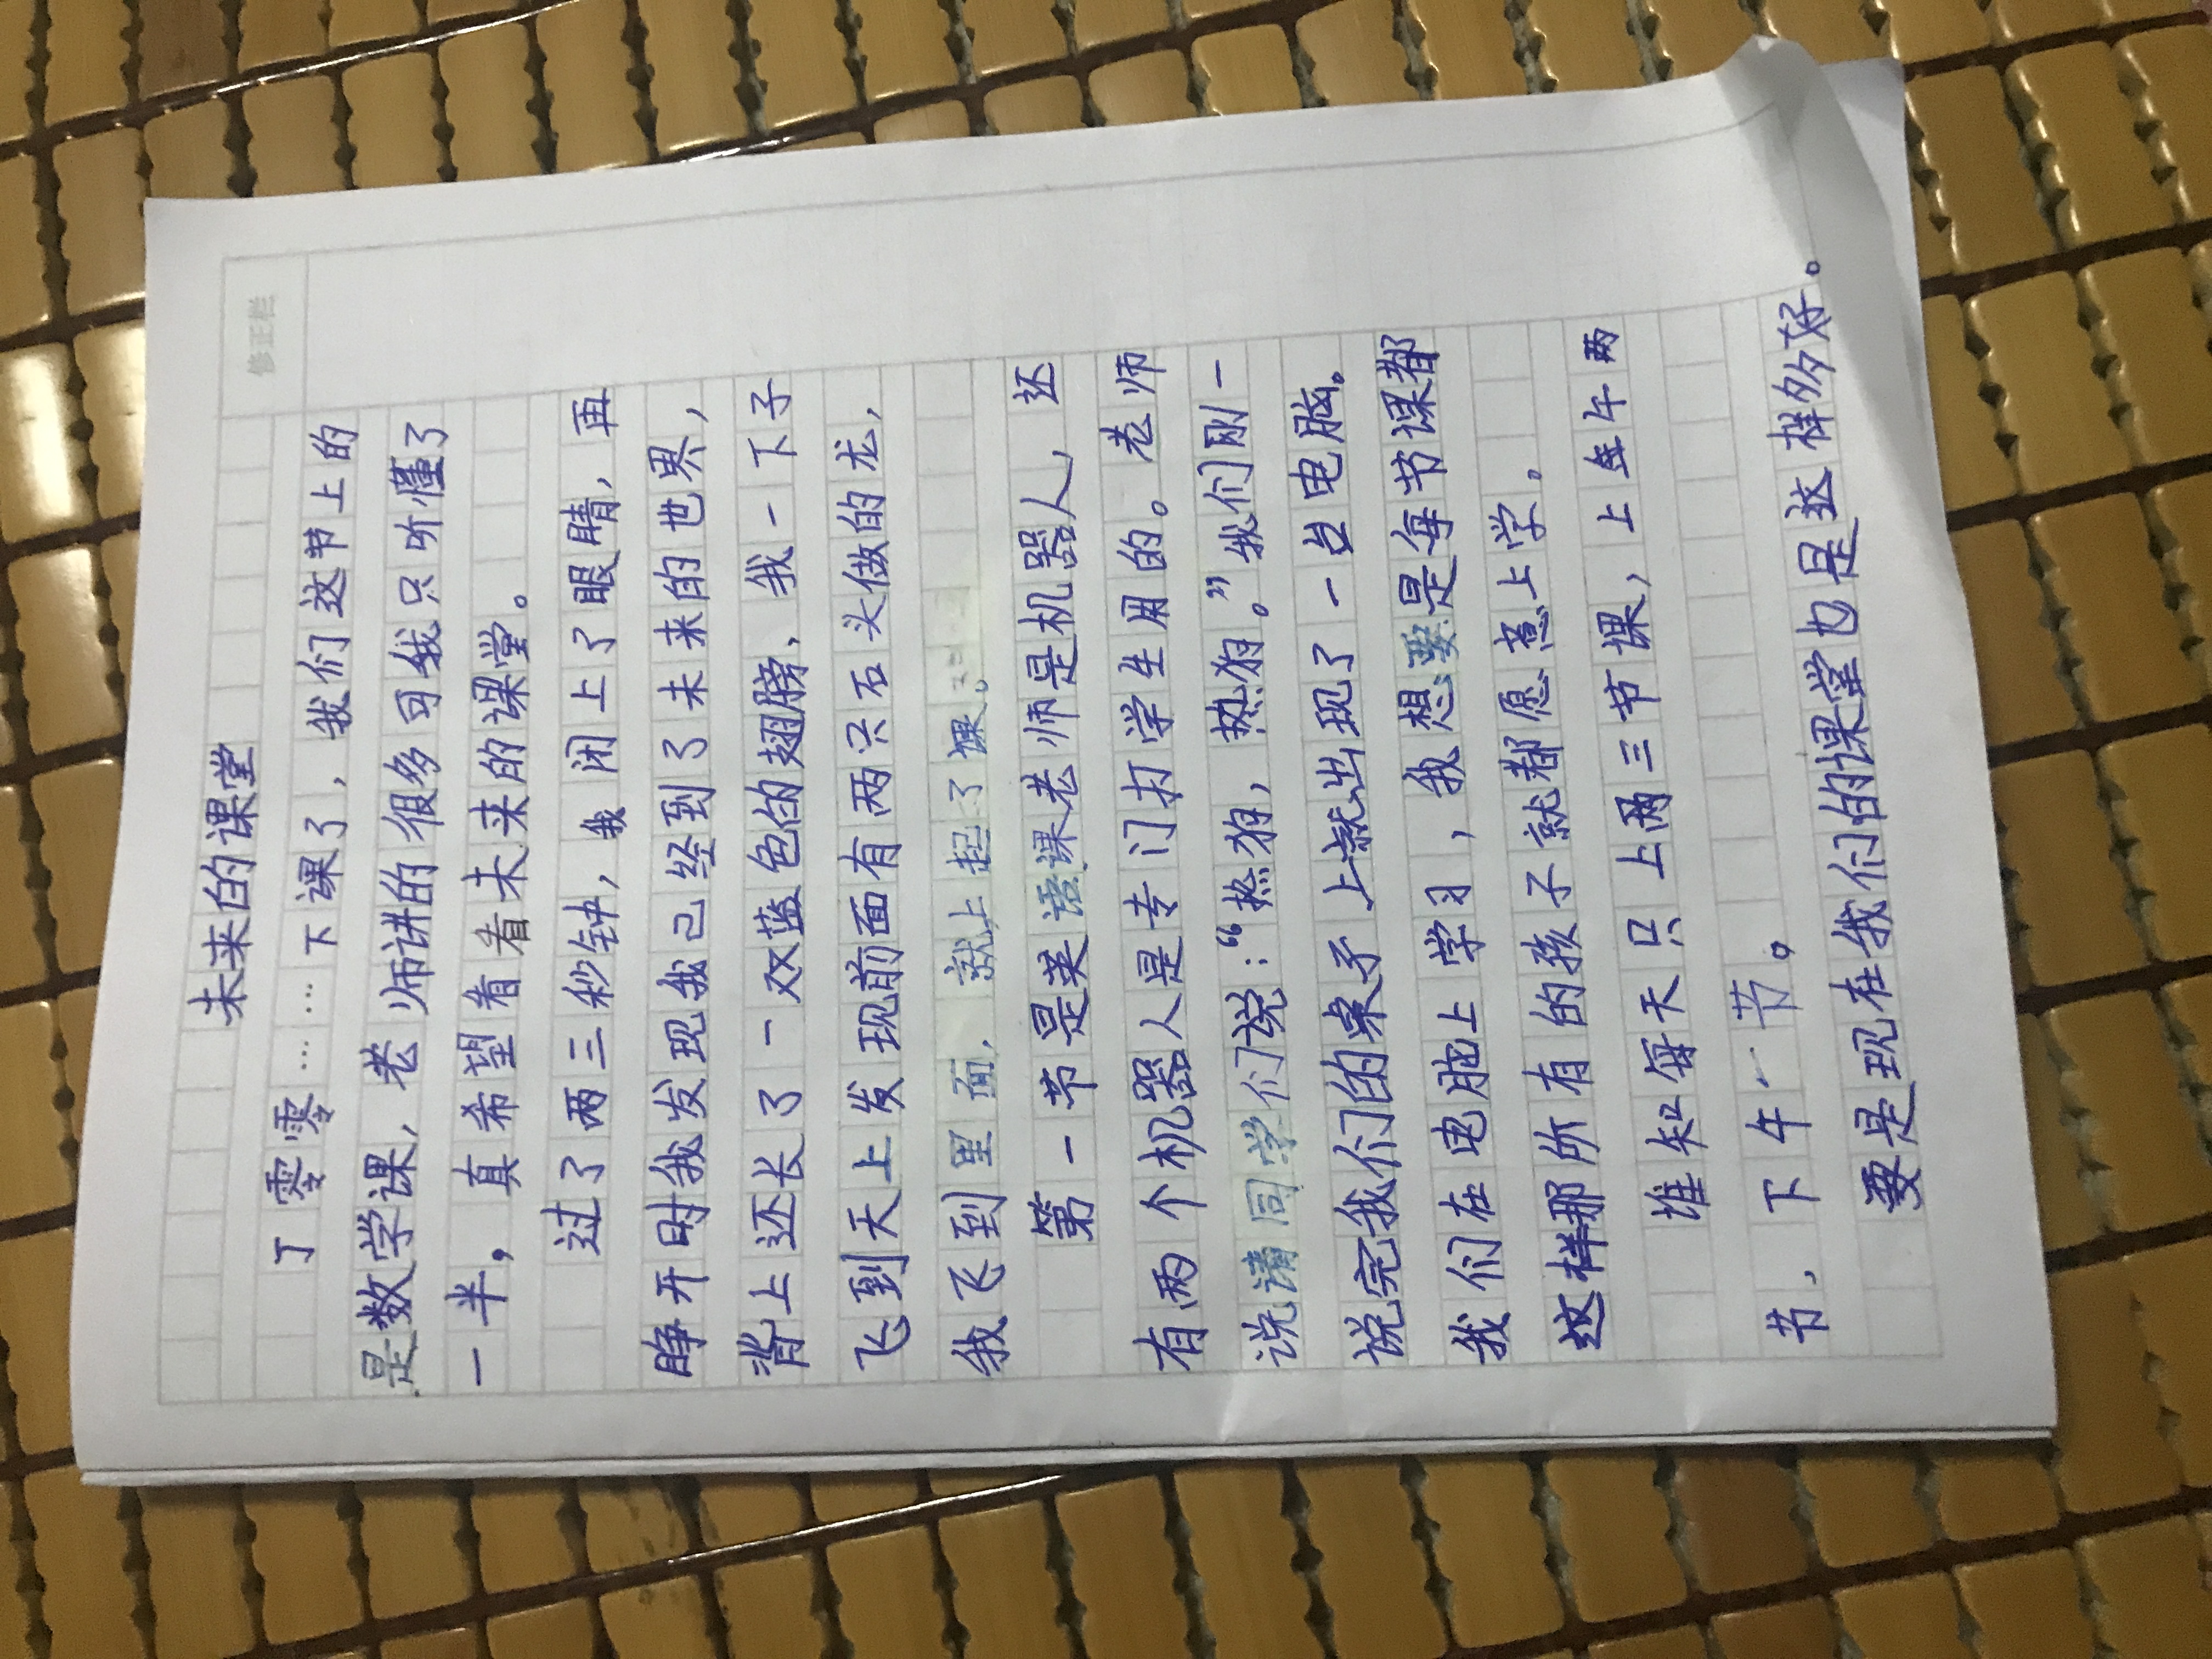 修正栏
未来的课堂
丁零零……下课了，我们这节上的
是数学课，老师讲的很多可我只听懂了
一半，真希望看看未来的课堂。
过了两三秒钟，我闭上了眼睛，再
睁开时我发现我己经到了未来的世界，
背上还长了一双蓝色的翅膀，我一下子
飞到天上发现前面有两只石头做的龙，
我飞到里面，就上起了课。
第一节是英语课老师是机器人，还
有两个机器人是专门打学生用的。老师
说请同学们说：“热狗，热狗。”我们刚一
说完我们的桌子上就出现了一台电脑。
我们在电脑上学习，我想要是每节课都
这样那所有的孩子就都愿意上学。
谁知每天只上两三节课，上午两
节，下午一节。
要是现在我们的课堂也是这样多好。